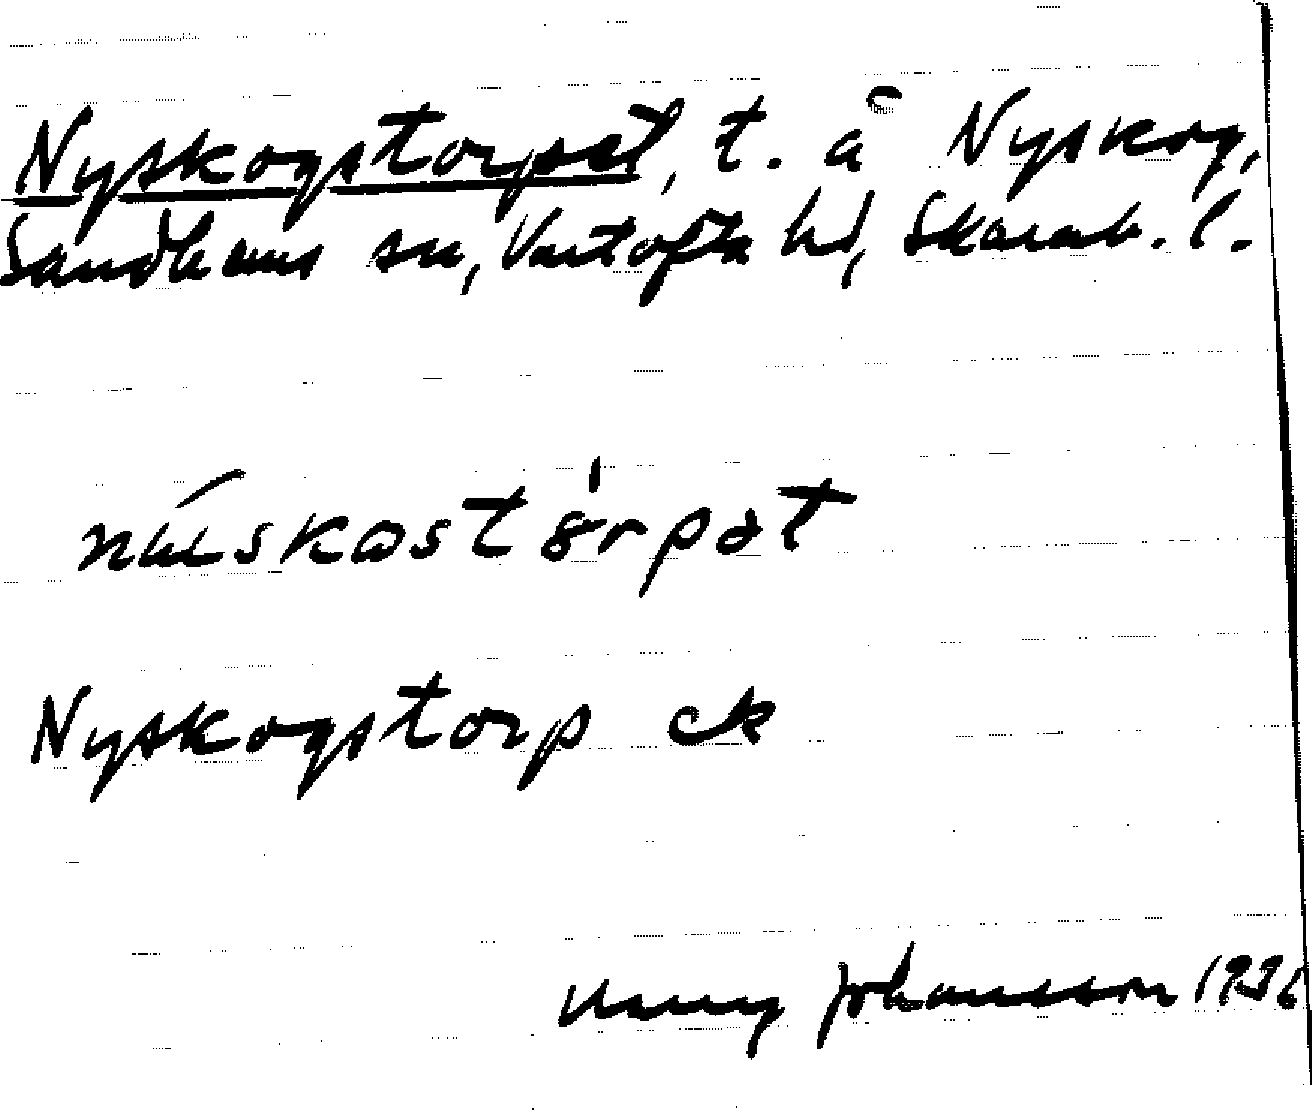 Nyskogstorpet, t. å Nyskog,
Sandhems sn, Vartofta hd, Skarab. l.
Nyskogstorp ek
Johansson 193